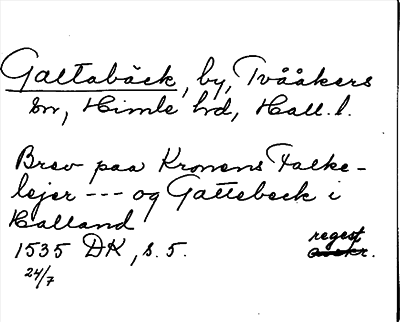 Galtabäck, by, Tvååkers
sn, Himle hd, Hall. l.
Brev paa Kronens Falke-
lejer --- og Gattebeck i
Halland
regest
1535 DK, s. 5. avskr.
24/7